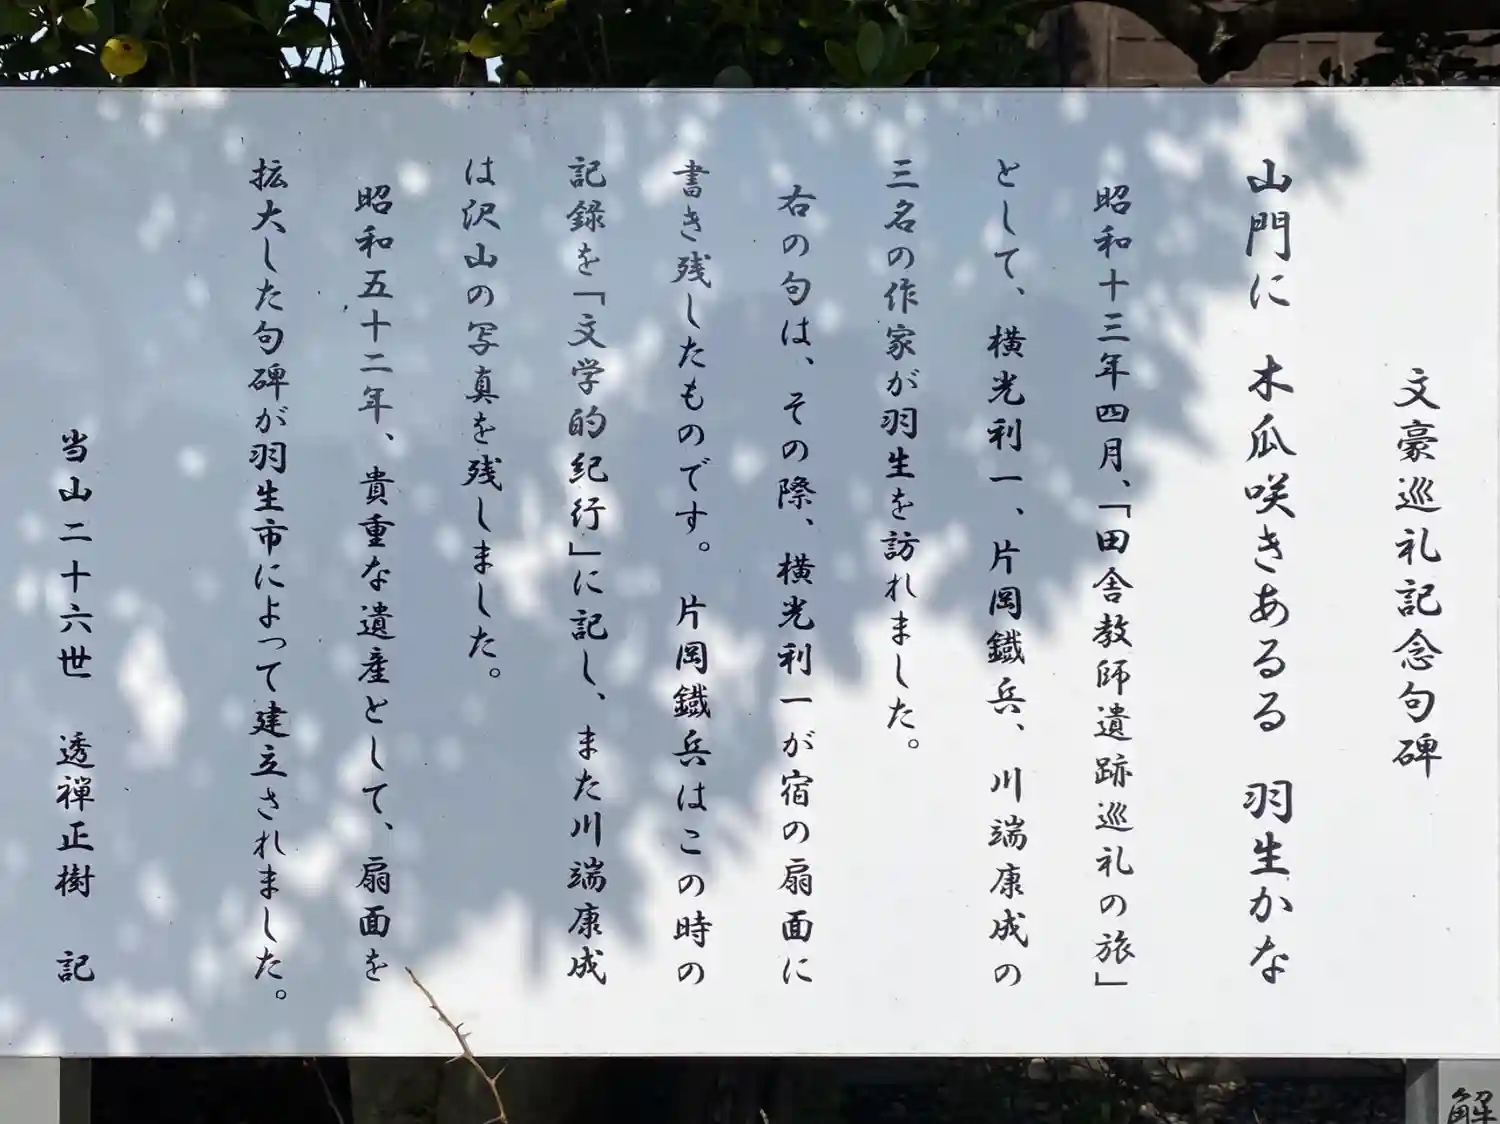 文豪巡礼記念句碑
山門に　木瓜咲きあるる　羽生かな
昭和十三年四月、「田舎教師遺跡巡礼の旅」
として、横光利一、片岡鐵兵、川端康成の
三名の作家が羽生を訪れました。
右の句は、その際、横光利一が宿の扇面に
書き残したものです。片岡鐵兵はこの時の
記録を「文学的紀行」に記し、また川端康成
は沢山の写真を残しました。
昭和五十二年、貴重な遺産として、扇面を
拡大した句碑が羽生市によって建立されました。
当山二十六世　透禅正樹　記
解